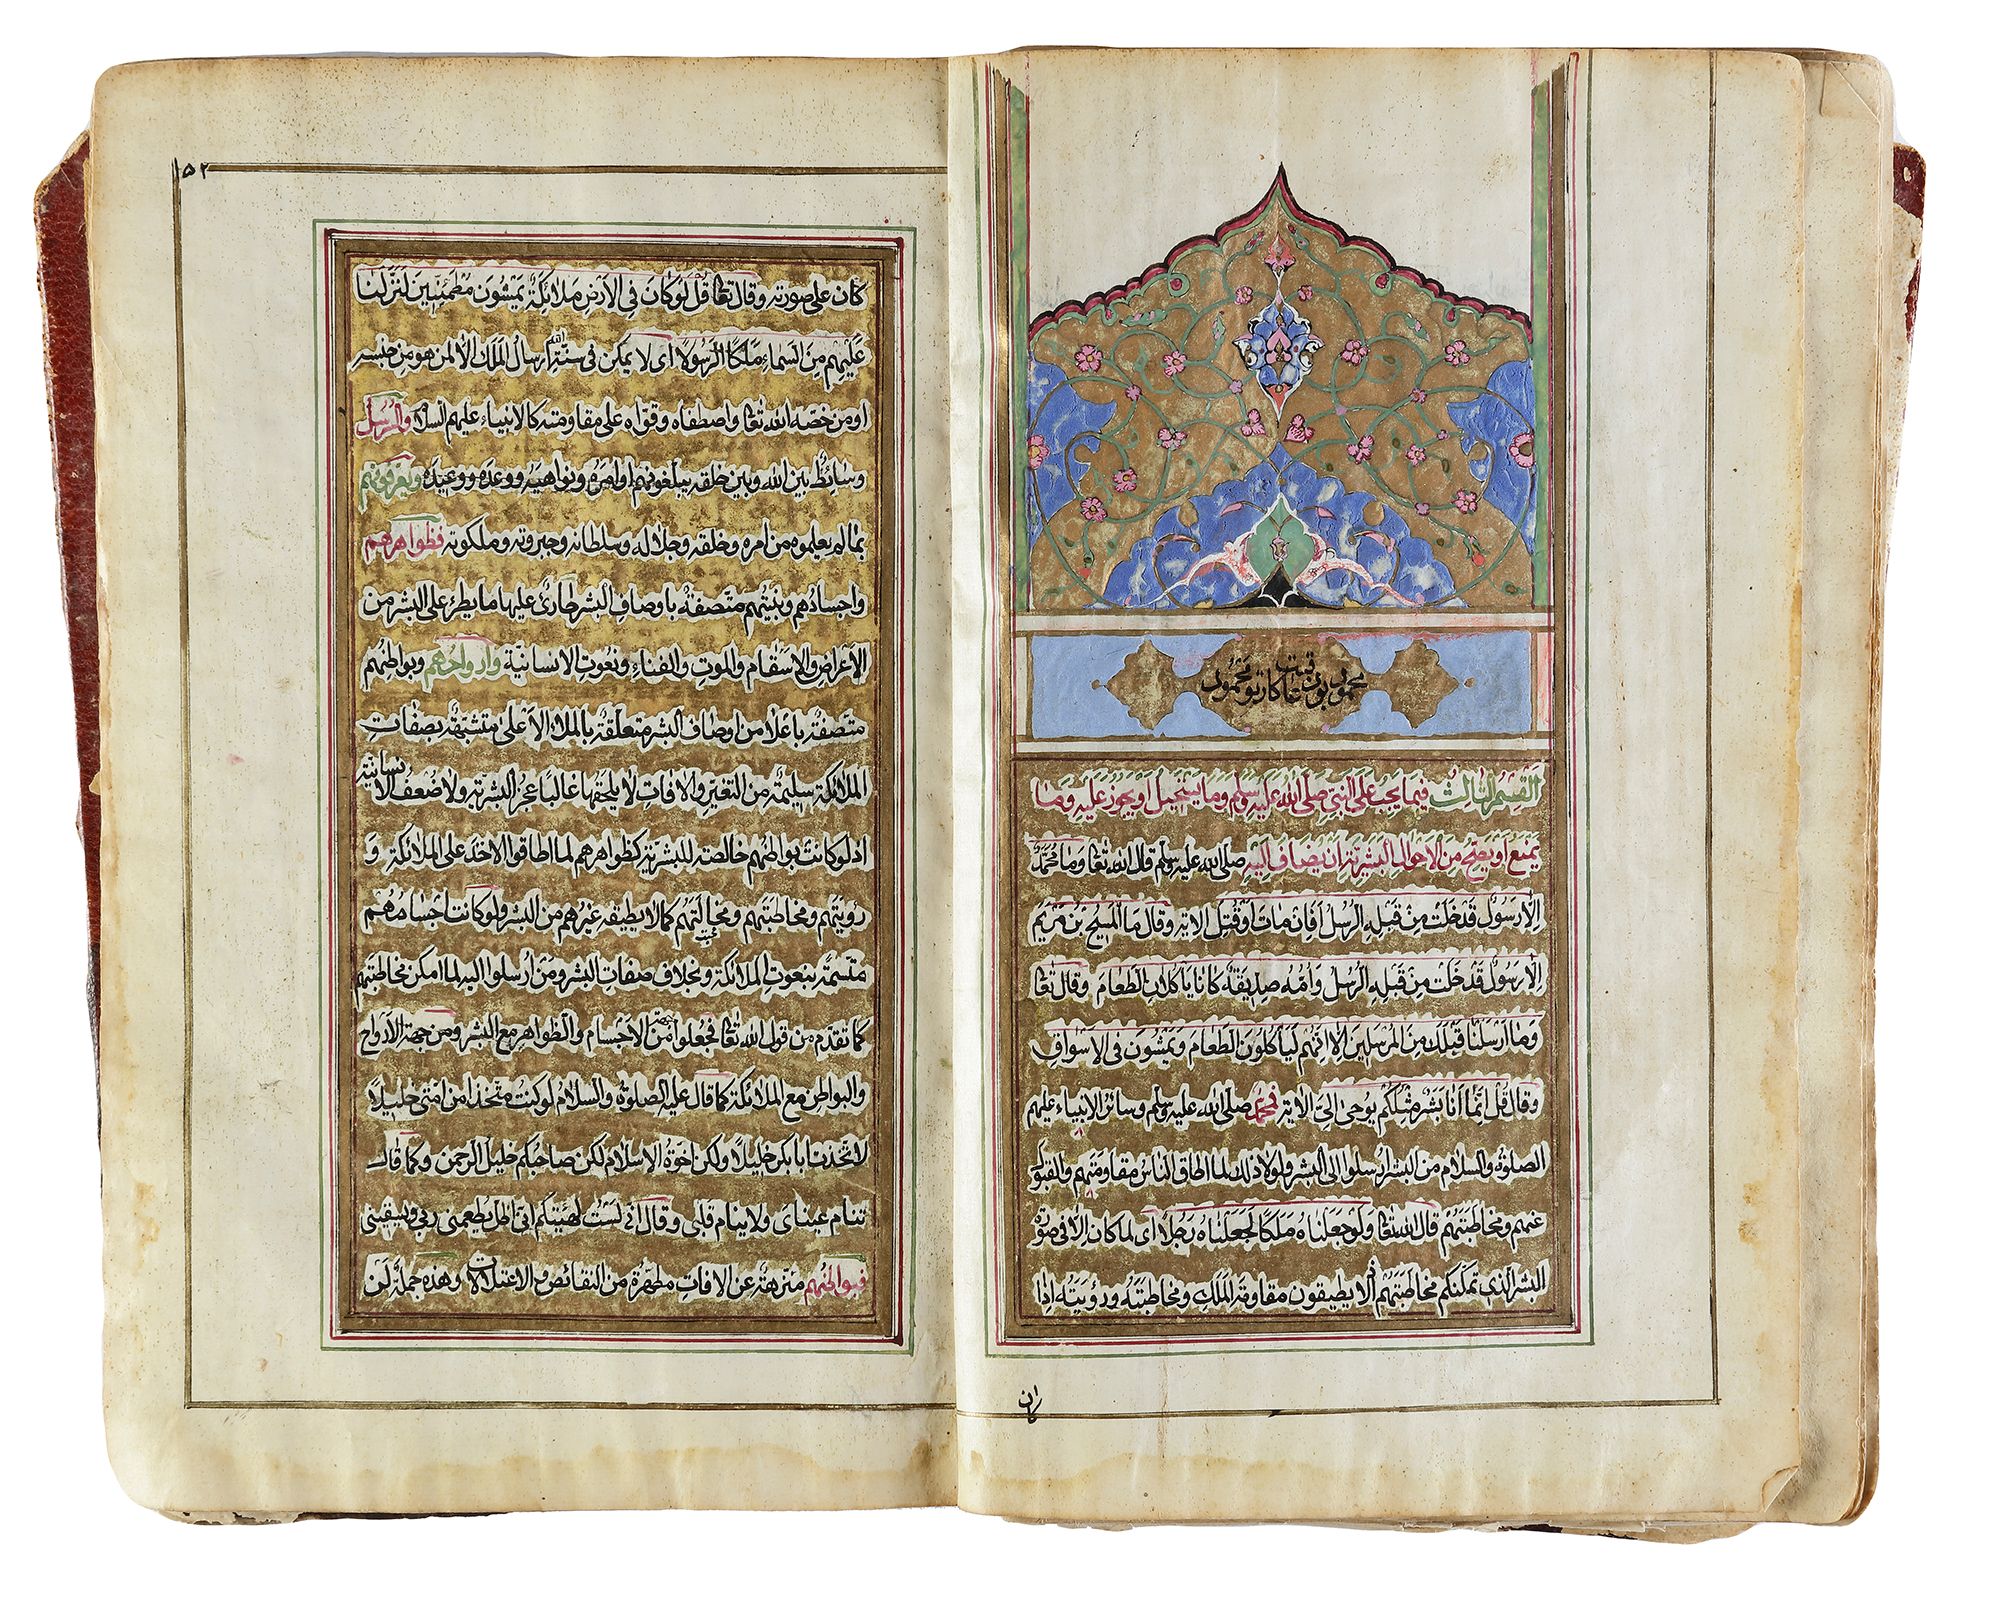 القسم الثالث فيما يجب على النبي صلى الله عليه وسلم وما يستحيل او يجوز عليه وما
يمتنع او يصح من الاحوال البشرية ان يضاف اليه صلى الله عليه وسلم قال الله تعالى وما محمد
الا رسول قد خلت من قبله الرسل افان مات او قتل الاية وقال ما المسيح بن مريم
الا رسول قد خلت من قبله الرسل وامه صديقة كانا ياكلان الطعام وقال تعالى
وما ارسلنا قبلك من المرسلين الا انهم لياكلون الطعام ويمشون في الاسواق
وقال قل انما انا بشر مثلكم يوحى الى الاية فمحمد صلى الله عليه وسلم وسائر الانبياء عليهم
الصلوة والسلام من البشر ارسلوا الى البشر ولولا ذلك لما اطاق الناس مقاومتهم والقبول
عنهم ومخاطبتهم قال الله تعالى ولو جعلناه ملكا لجعلناه رجلا اى لما كان الا في صورة
البشر الذى تمكنكم مخاطبتهم اذ لا يطيقون مقاومة الملك ومخاطبته ورؤيته اذا
كان
١٥٢
كان على صورته وقال تعالى قل لو كان في الارض ملائكة يمشون مطمئنين لنزلنا
عليهم من السماء ملكا الرسولا اى لا يمكن في سنة الله ارسال الملك الا لمن هو من جنسه
او من خصه الله تعالى واصطفاه وقواه على مقاومته كالانبياء عليهم السلام والرسل
وسائط بين الله وبين خلقه يبلغونهم اوامره ونواهيه ووعده ووعيده ويعرفونهم
بما لم يعلموه من امره وخلقه وجلاله وسلطانه وجبروته وملكوته فظواهرهم
واجسادهم وبنيتهم متصفة باوصاف البشر طارئ عليها ما يطرئ على البشر من
الاعراض والاسقام والموت والفناء ونعوت الانسانية وارواحهم وبواطنهم
متصفة باعلا من اوصاف البشر متعلقة بالملاء الاعلى متشبهة بصفات
الملائكة سليمة من التغير والافات لا يلحقها غالبا عجز البشرية ولا ضعف الانسانية
اذ لو كانت بواطنهم خالصة للبشرية كظواهرهم لما اطاقوا الاخذ على الملائكة و
رؤيتهم ومخاطبتهم ومخالتهم كما لا يطيقه غيرهم من البشر ولو كانت اجسامهم
متسمة بنعوت الملائكة وبخلاف صفات البشر ومن ارسلوا اليه لما امكن مخاطبتهم
كما تقدم من قول الله تعالى فجعلوا من جهة الاجسام والظواهر مع البشر ومن جهة الارواح
والبواطن مع الملائكة كما قال عليه الصلوة والسلام لو كنت متخذا من امتى خليلا
لاتخذت ابا بكر خليلا ولكن اخوة الاسلام لكن صاحبكم خليل الرحمن وكما قال
تنام عيناى ولا ينام قلبى وقال انى لست كهيئتكم انى اظل يطعمنى ربى ويسقينى
فبواطنهم منزهة عن الافات مطهرة من النقائص والاعتلالات وهذه جملة لن